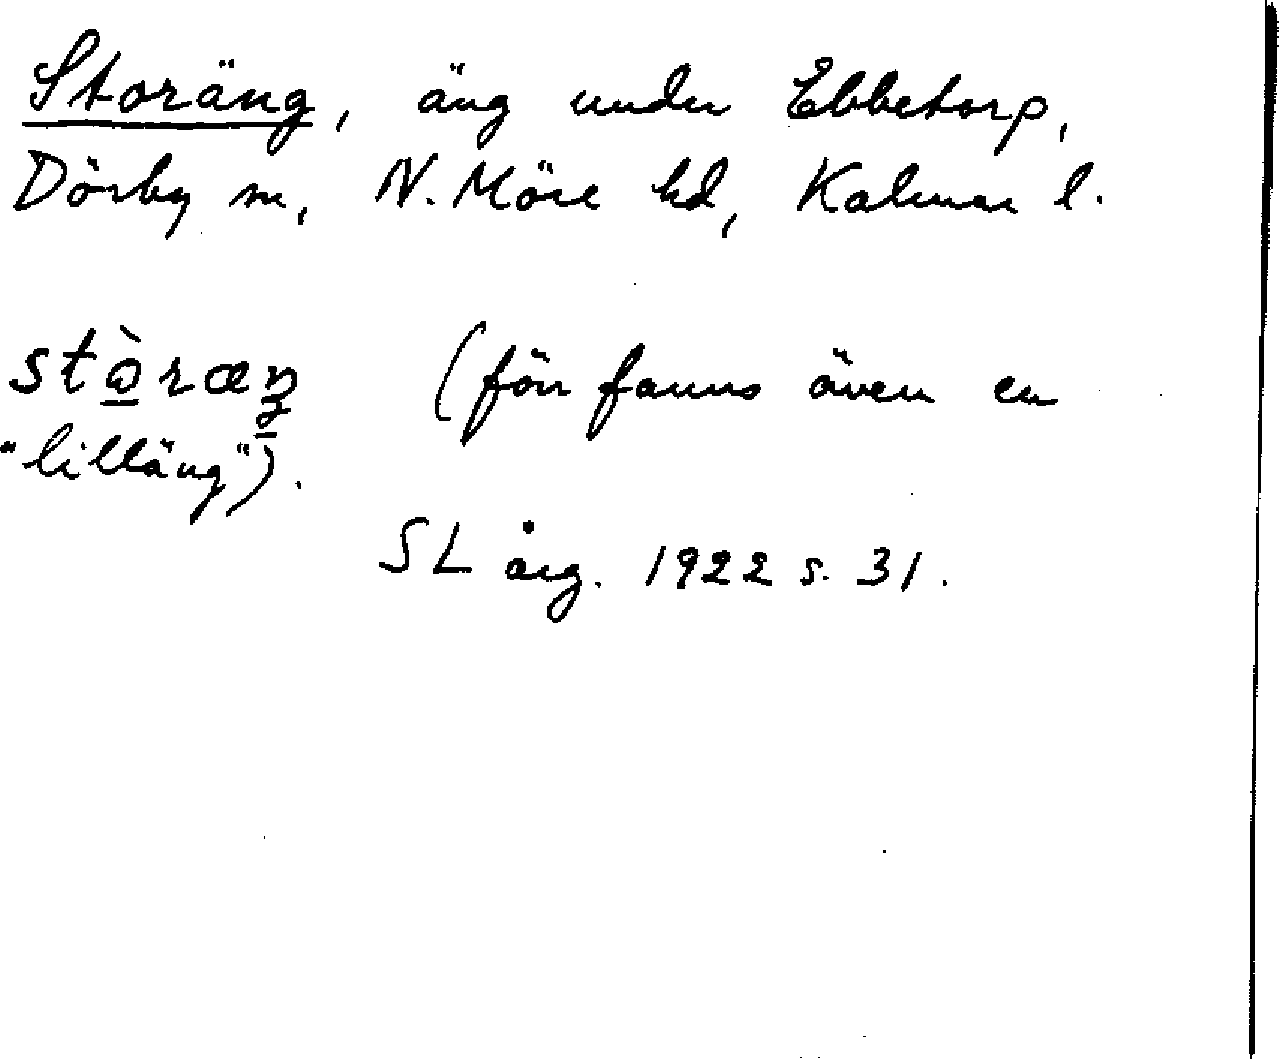 Storäng, äng under Ebbetorp,
Dörby sn, N. Möre hd, Kalmar l.
stò̱ræŋ̱ (förr fanns även en
"lilläng").
SL årg. 1922 s. 31.